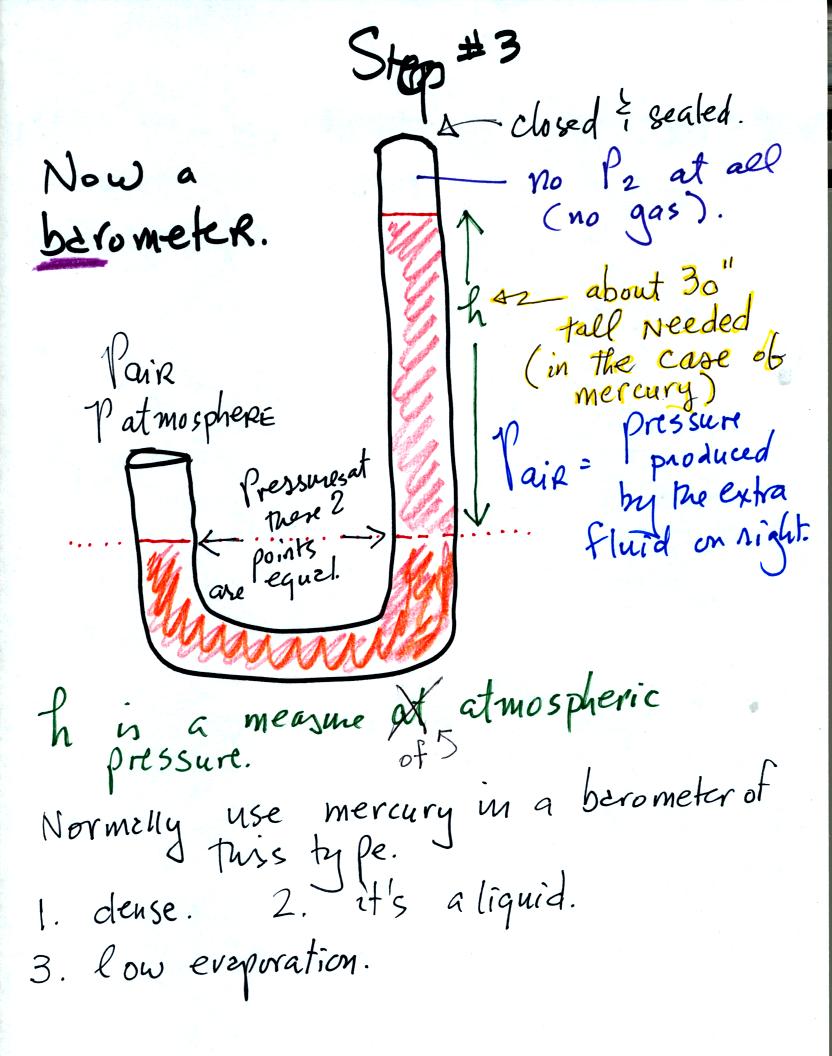 Step #3
closed & sealed.
Now a
barometer.
no P2 at all
(no gas).
h
about 30"
tall needed
(in the case of
mercury)
PAIR
Patmosphere
PAIR = pressure
produced
by the extra
fluid on right.
Pressures at
these 2
points
are equal.
h is a measure at atmospheric
of 5
pressure.
Normally use mercury in a barometer of
this type.
1. dense. 2. it's a liquid.
3. low evaporation.